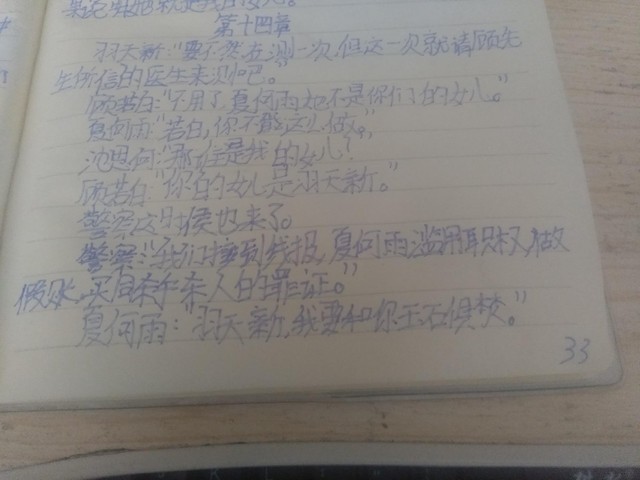 第十四章
羽天新:“要不然在测一次,但这一次就请顾先
生所信的医生来测吧。
顾若白:“不用了,夏何雨也不是你们的女儿。”
夏何雨:“若白,你不能这么做。”
沈思向:“那谁是我的女儿?”
顾若白:“你的女儿是羽天新。”
警察这时候也来了。
警察:“我们接到线报,夏何雨滥用职权,做
假账,买凶杀人的罪证。”
夏何雨:“羽天新,我要和你玉石俱焚。”
33